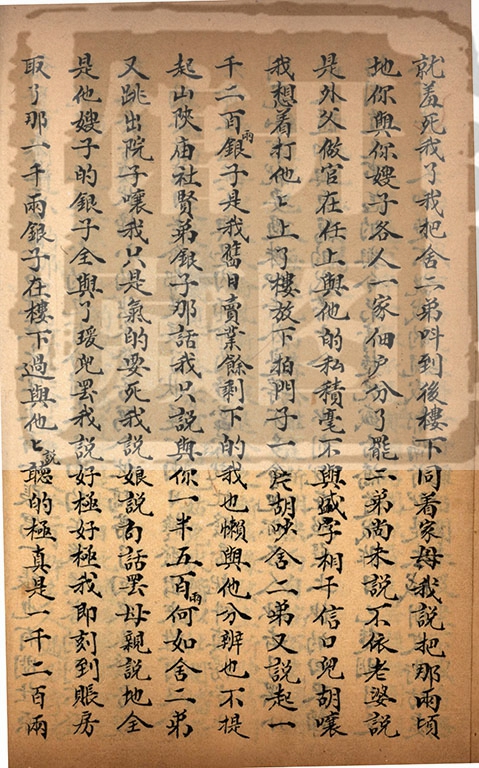 就羞死我了我把舍二弟呌到後樓下同着家母我說把那兩頃
地你與你嫂子各人一家佃户分了罷二弟尚未說不依老婆說
是外父做官在任上與他的私積毫不與盛字相干信口兒胡嚷
我想着打他他上了樓放下拍門子一片胡吵舍二弟又說起一
千二百兩銀子是我舊日賣業餘剩下的我也懶與他分辨也不提
起山陝庙社賢弟銀子那話我只說與你一半五百兩何如舍二弟
又跳出院子嚷我只是氣的要死我說娘說句話罢母親說地全
是他嫂子的銀子全與了瑗兒罢我說好極好極我即刻到賬房
取了那一千兩銀子在樓下過與他他說聽的極真是一千二百兩